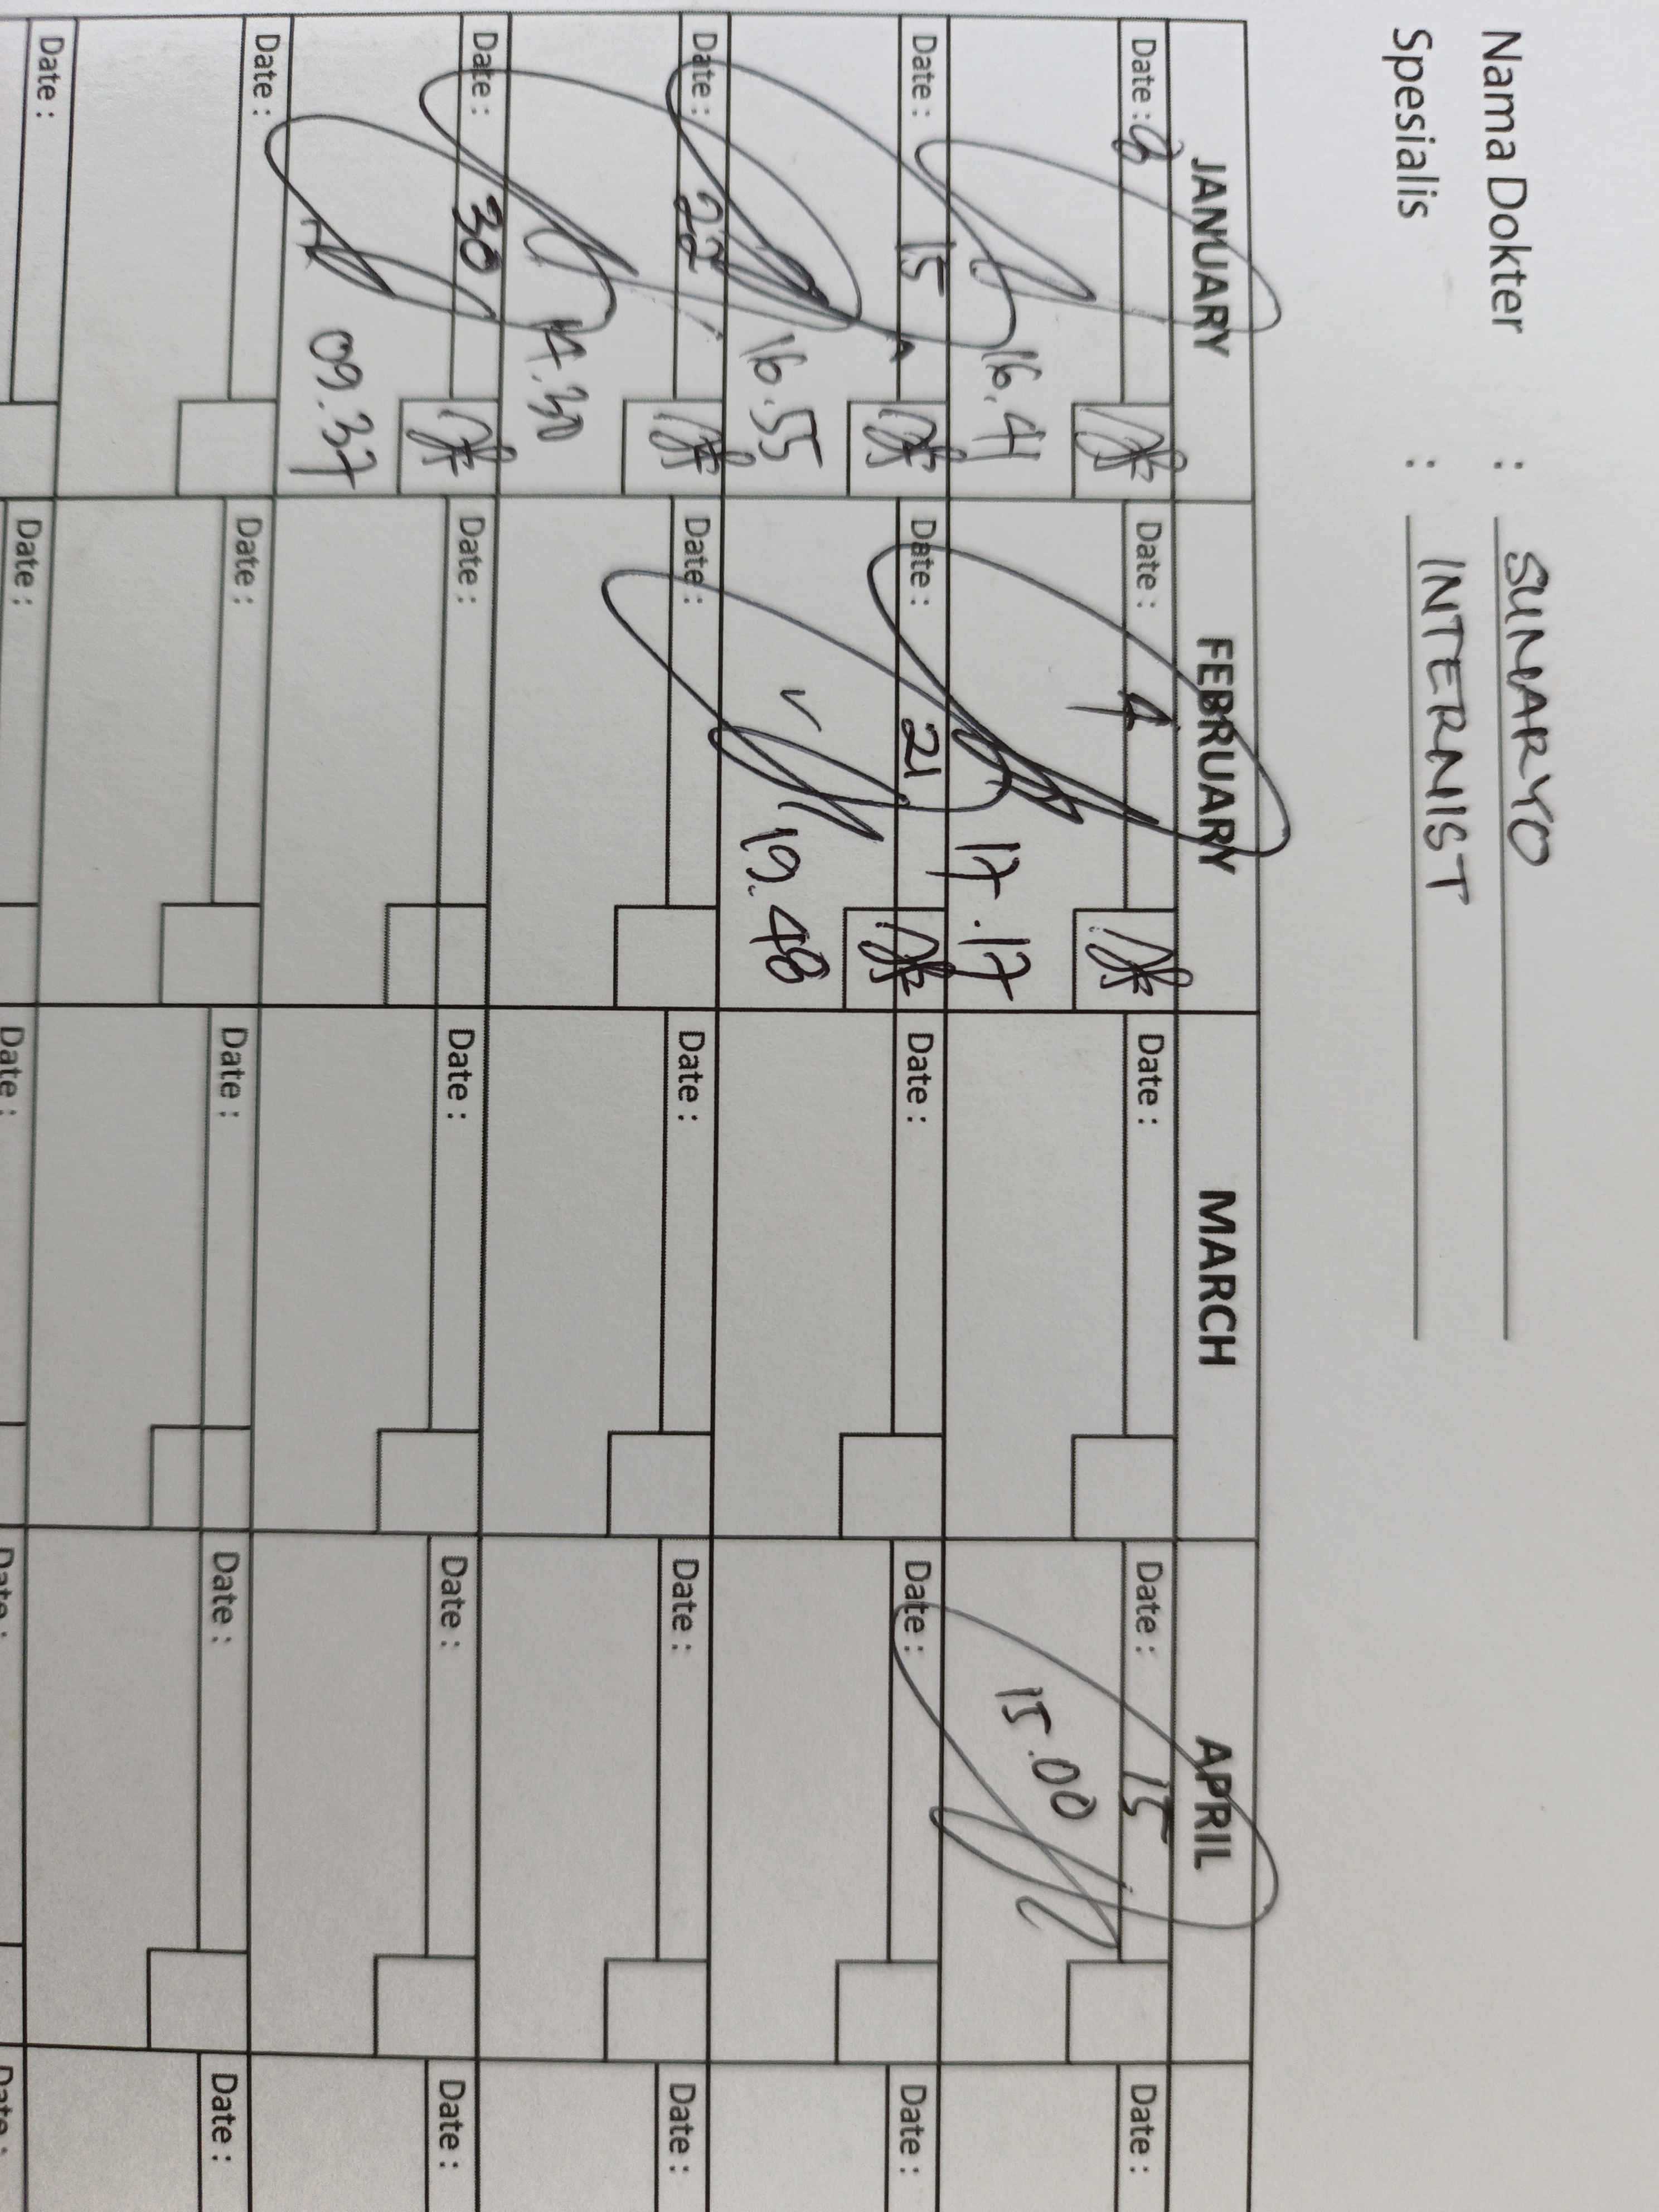 Nama Dokter : SUNARYO
Spesialis : INTERNIST
JANUARY FEBRUARY MARCH APRIL
Date : 8 Date : 4 Date : Date : 15 Date :
16.41 17.17 15.00
Date : 15 Date : 21 Date : Date : Date :
16.55 19.48
Date : 22 Date : Date : Date : Date :
14.30
Date : 30 Date : Date : Date : Date :
09.37
Date : Date : Date : Date : Date :
Date : Date : Date : Date : Date :